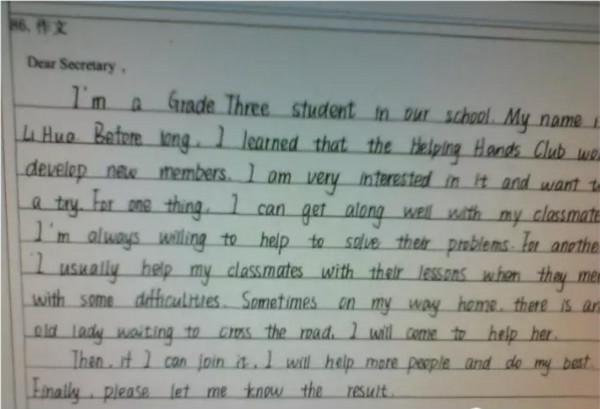 86. 作文
Dear Secretary,
I'm a Grade Three student in our school. My name
Li Hua. Before long, I learned that the Helping Hands Club
develop new members. I am very interested in it and want
a try. For one thing, I can get along well with my classmate
I'm always willing to help to solve their problems. For anothe
I usually help my classmates with their lessons when they
with some difficulties. Sometimes on my way home, there is an
old lady waiting to cross the road, I will come to help her.
Then, if I can join it, I will help more people and do my best.
Finally, please let me know the result.